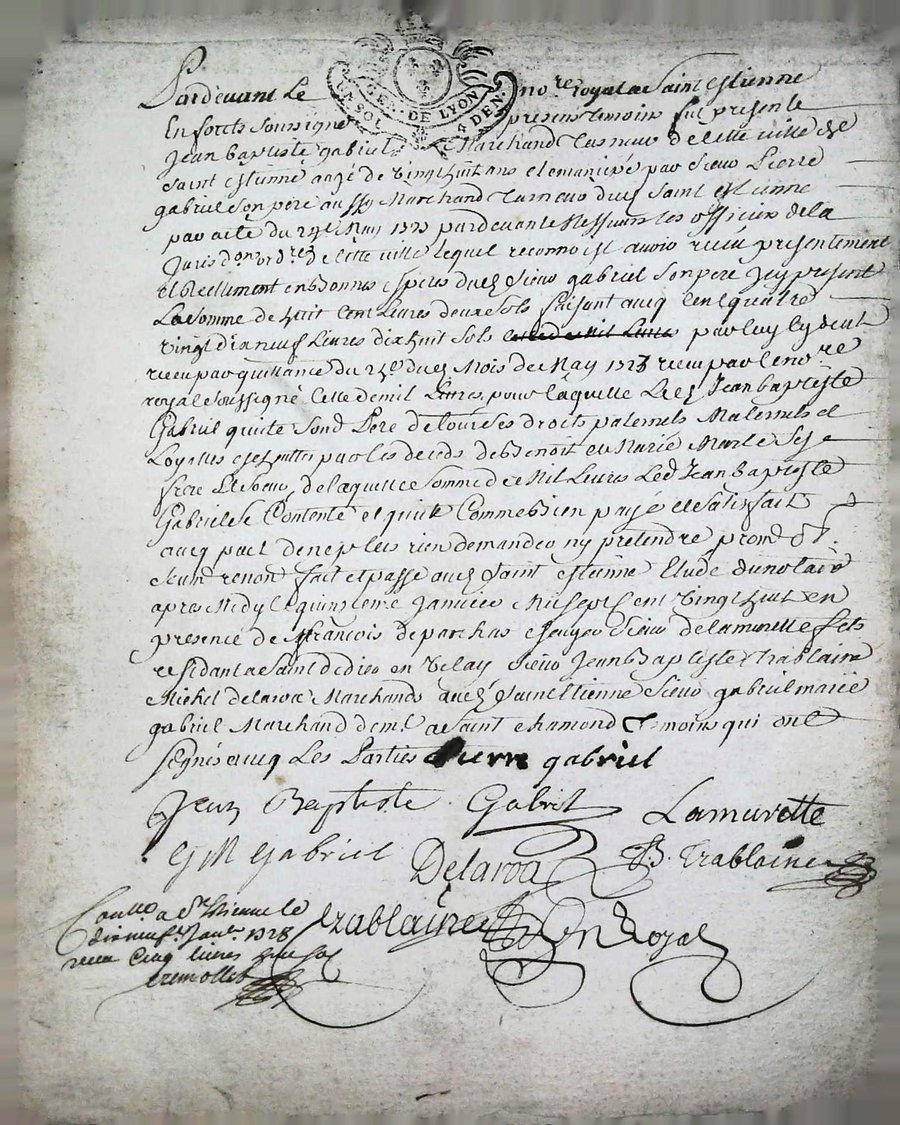 GEN. DE LYON
UN SOL 4 DEN.
Pardevant Le no.re royal a Saint estienne
En forests soussigné presens temoins fut presente
Jean baptiste gabriel Marchand de cette ville de
saint estienne aagé de vingt huit ans et emancipé par sieur Pierre
gabriel son pere aussy Marchand dud Saint estienne
par acte du May 1723 pardevant Messieurs les officiers de la
Juris.d.on ord.re de cette ville lequel reconnoist avoir receu presentement
et reellement en bonnes especes dud Sieur gabriel son pere Icy present
La somme de huit Cent Livres deux sols faisant avec Cent quatre
vingt dix neuf Livres dix huit sols par luy cy devt
receu par quittance du dud Mois de May 1723 receu par le no.re
royal soussigné Celle de mil Livres, pour laquelle Led Jean baptiste
Gabriel quitte Sond Pere de tous ses droits paternels Maternels et
par les deceds de Benoit et Marie
frere Et soeur, de laquelle somme de Mil Livres Led Jean baptiste
Gabriel se Contente et quitte Comme bien payé et satisfait
avec pact de ne plus rien demander ny pretendre prom
renon fait et passé aud Saint estienne Etude du notaire
apres Midy le quinzieme Janvier Mil sept Cent vingt huit en
presence de françois de parchas Sieur de lamurette
residant a Saint didier en velay sieur Jean baptiste trablaine
Michel delaroa Marchands aud Saint Etienne Sieur gabriel marie
gabriel Marchand dem.t a Saint chamond temoins qui ont
signés avec Les Parties Pierre gabriel
Jean Baptiste Gabriel Lamurette
GM Gabriel Delaroa JB. Trablaine
Trablaine Royal
a St Etienne le
dix neuf Janv. 1728
receu Cinq livres
tremollet